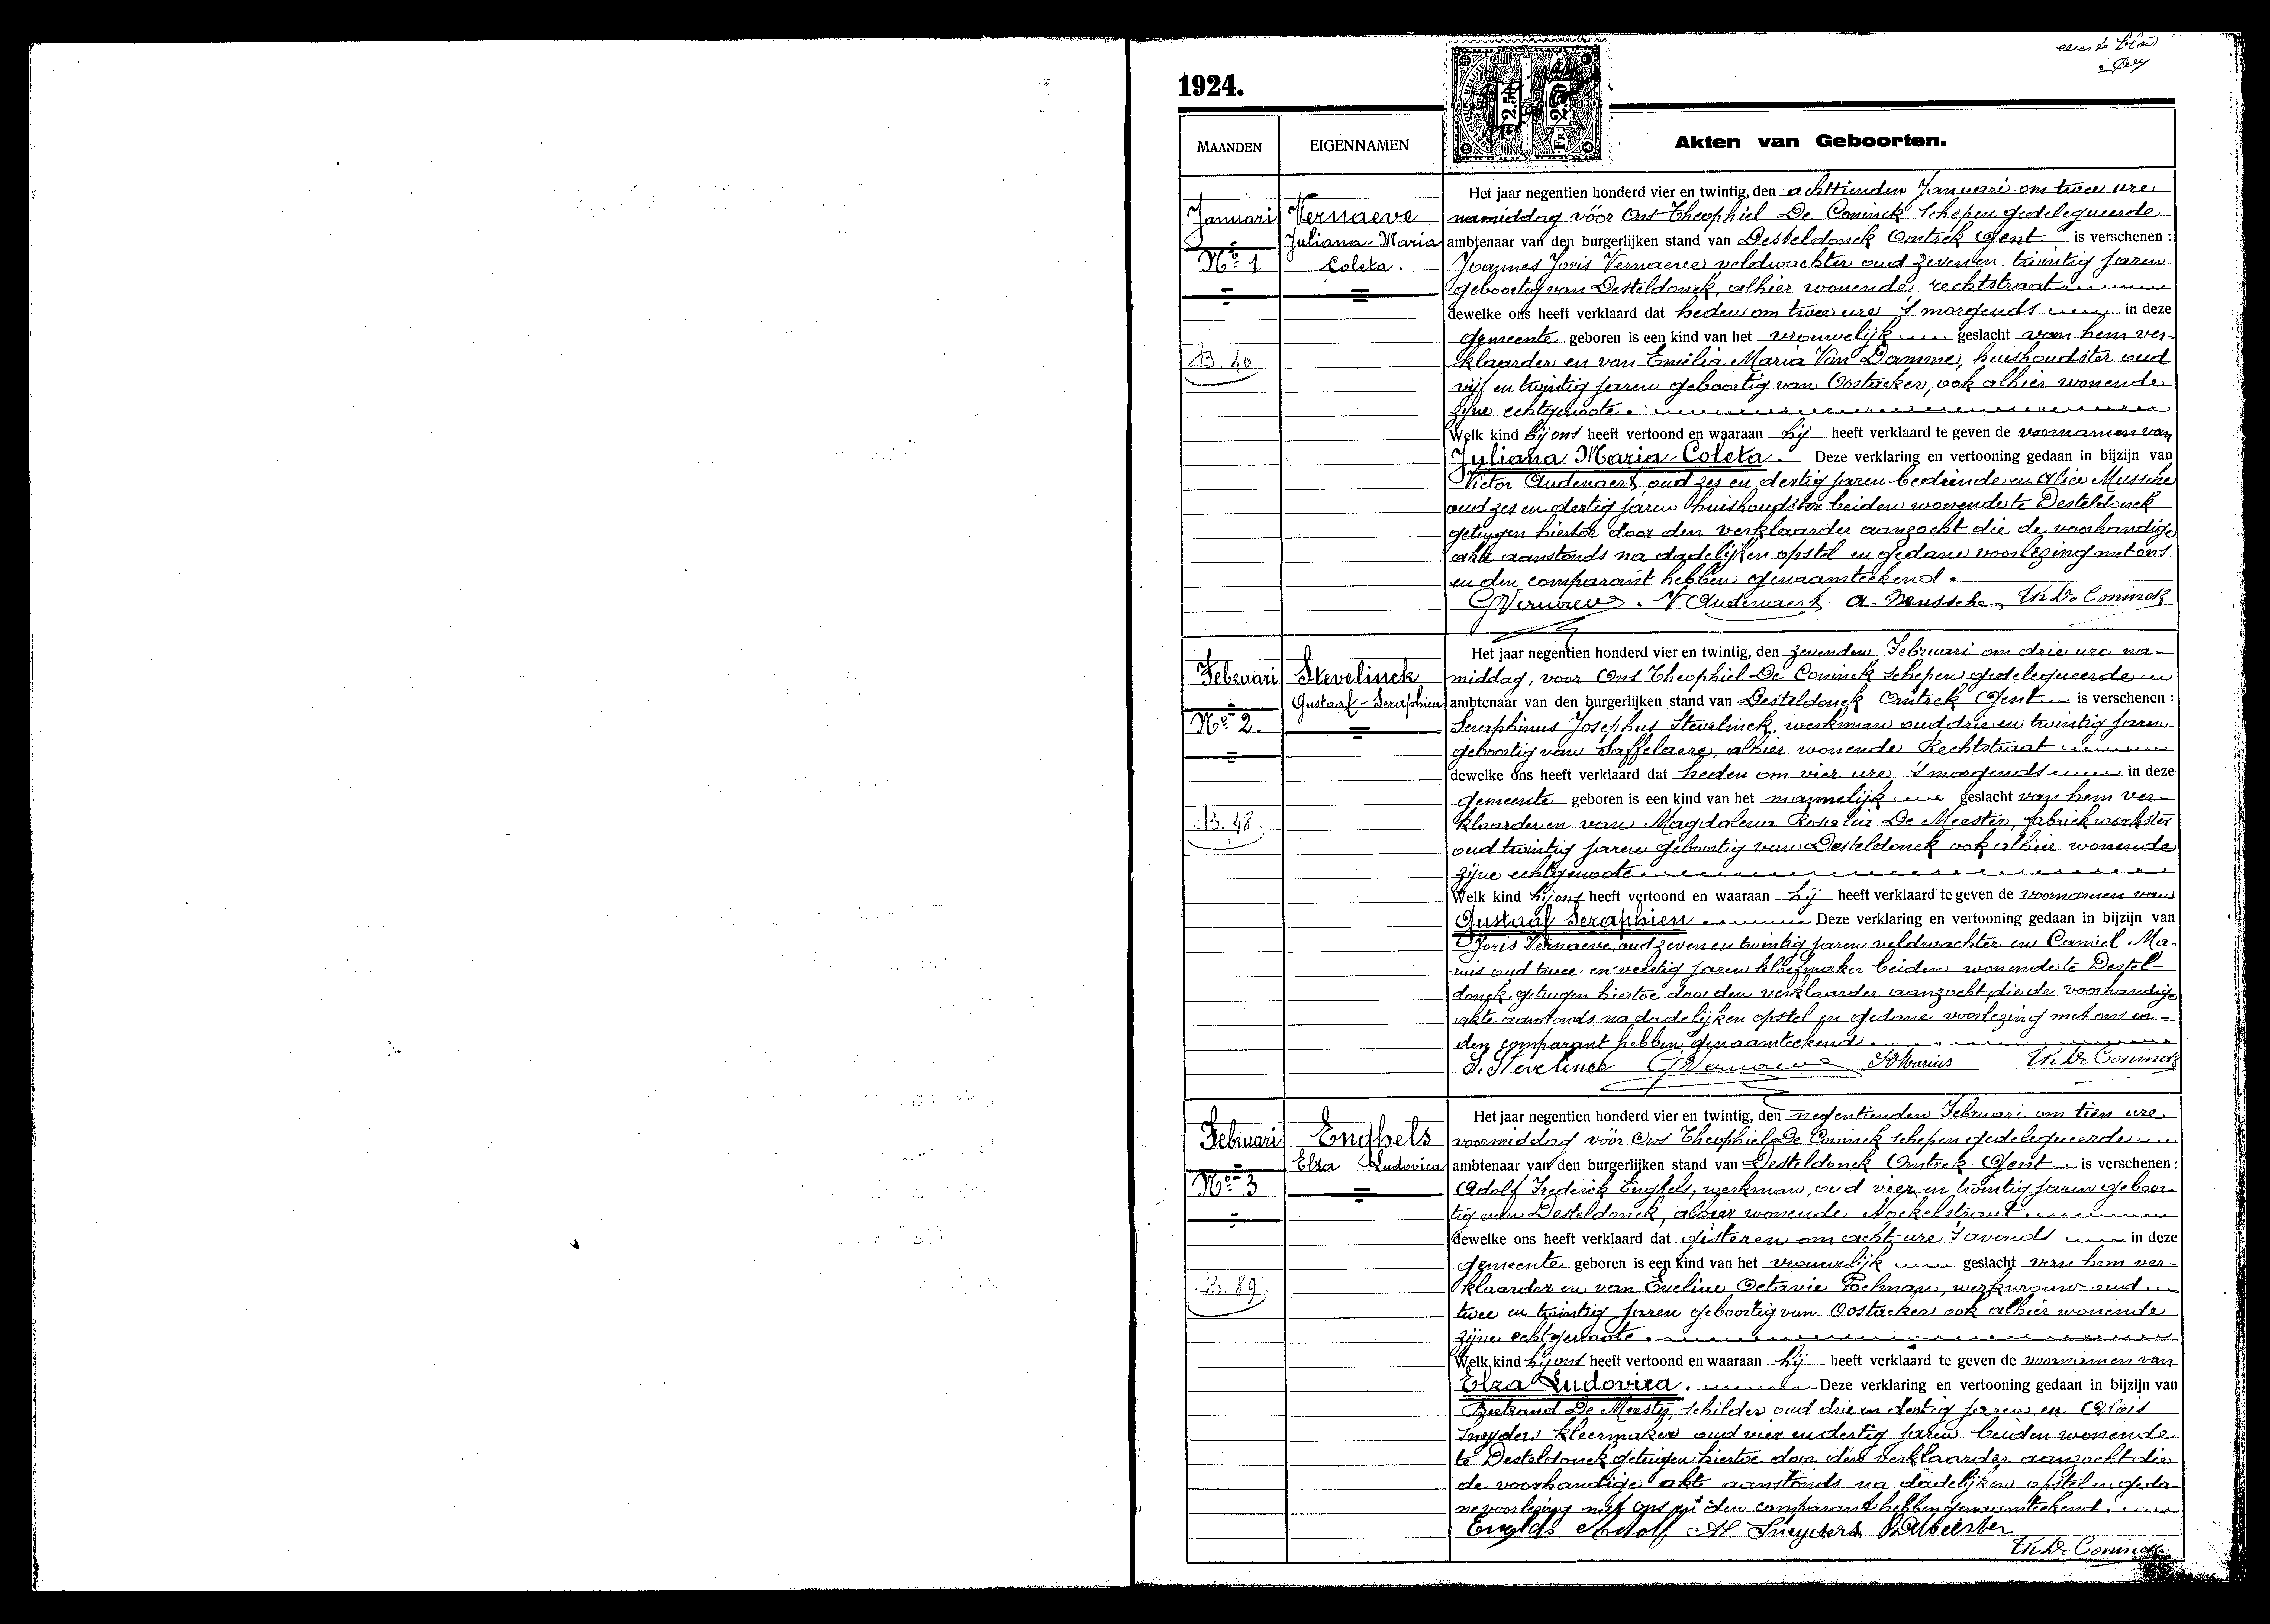 eerste blad
1924.
BELGIQUE-BELGIE
2.50
FR 2.50
MAANDEN
EIGENNAMEN
Akten van Geboorten.
Januari
No 1
B. 40
Vernaeve
Juliana-Maria
Coleta.
Het jaar negentien honderd vier en twintig, den achttienden Januari om twee ure
namiddag vóór Ons Theophiel De Coninck schepen gedelegueerde
ambtenaar van den burgerlijken stand van Desteldonck Omtrek Gent is verschenen :
Joannes Joris Vernaeve veldwachter oud zeven en twintig jaren
geboortig van Desteldonck, alhier wonende rechtstraat
dewelke ons heeft verklaard dat heden om twee ure 's morgends in deze
gemeente geboren is een kind van het vrouwelijk geslacht van hem ver-
klaarder en van Emilia Maria Van Damme, huishoudster oud
vijf en twintig jaren geboortig van Oostacker, ook alhier wonende
zijne echtgenoote.
Welk kind hij ons heeft vertoond en waaraan hij heeft verklaard te geven de voornamen van
Juliana Maria-Coleta. Deze verklaring en vertooning gedaan in bijzijn van
Victor Audenaert, oud zes en dertig jaren bediende en Alice Mussche
oud zes en dertig jaren huishoudster beiden wonende te Desteldonck
getuygen hiertoe door den verklaarder aanzocht die de voorhandige
akte aanstonds na dadelijken opstel en gedane voorlezing met ons
en den comparant hebben genaamteekend.
GVernaeve. V Audenaert. A. Mussche Th De Coninck
Februari
No 2.
B. 48.
Stevelinck
Gustaaf-Seraphien
Het jaar negentien honderd vier en twintig, den zevenden Februari om drie ure na-
middag, voor Ons Theophiel De Coninck schepen gedelegueerde
ambtenaar van den burgerlijken stand van Desteldonck Omtrek Gent is verschenen :
Seraphinus Josephus Stevelinck, werkman oud drie en twintig jaren
geboortig van Saffelaere, alhier wonende Rechtstraat
dewelke ons heeft verklaard dat heden om vier ure 's morgends in deze
gemeente geboren is een kind van het mannelijk geslacht van hem ver-
klaarder en van Magdalena Rosalia De Meester, fabriekwerkster
oud twintig jaren geboortig van Desteldonck ook alhier wonende
zijne echtgenoote
Welk kind hij ons heeft vertoond en waaraan hij heeft verklaard te geven de voornamen van
Gustaaf Seraphien. Deze verklaring en vertooning gedaan in bijzijn van
Joris Vernaeve, oud zeven en twintig jaren veldwachter en Camiel Ma-
rius oud twee en veertig jaren kloefmaker beiden wonende te Destel-
donck, getuigen hiertoe door den verklaarder aanzocht, die de voorhandige
akte aanstonds na dadelijken opstel en gedane voorlezing met ons en
den comparant hebben genaamteekend.
S. Stevelinck GVernaeve Marius Th De Coninck
Februari
No 3
B. 89.
Enghels
Elza Ludovica
Het jaar negentien honderd vier en twintig, den negentienden Februari om tien ure
voormiddag vóór Ons Theophiel De Coninck schepen gedelegueerde
ambtenaar van den burgerlijken stand van Desteldonck Omtrek Gent is verschenen :
Adolf Frederick Enghels, werkman, oud vier en twintig jaren geboor-
tig van Desteldonck, alhier wonende
dewelke ons heeft verklaard dat gisteren om acht ure 's avonds in deze
gemeente geboren is een kind van het vrouwelijk geslacht van hem ver-
klaarder en van Eveline Octavie Poelman, werkvrouw oud
twee en twintig jaren geboortig van Oostacker ook alhier wonende
zijne echtgenoote.
Welk kind hij ons heeft vertoond en waaraan hij heeft verklaard te geven de voornamen van
Elza Ludovica. Deze verklaring en vertooning gedaan in bijzijn van
Bertrand De Meester, schilder oud drie en dertig jaren en Alois
Sneyders kleermaker oud vier en dertig jaren beiden wonende
te Desteldonck getuigen hiertoe door den verklaarder aanzocht die
de voorhandige akte aanstonds na dadelijken opstel en geda-
ne voorlezing met ons en den comparant hebben genaamteekend.
Enghels Adolf Al Sneyders B De Meester
Th De Coninck